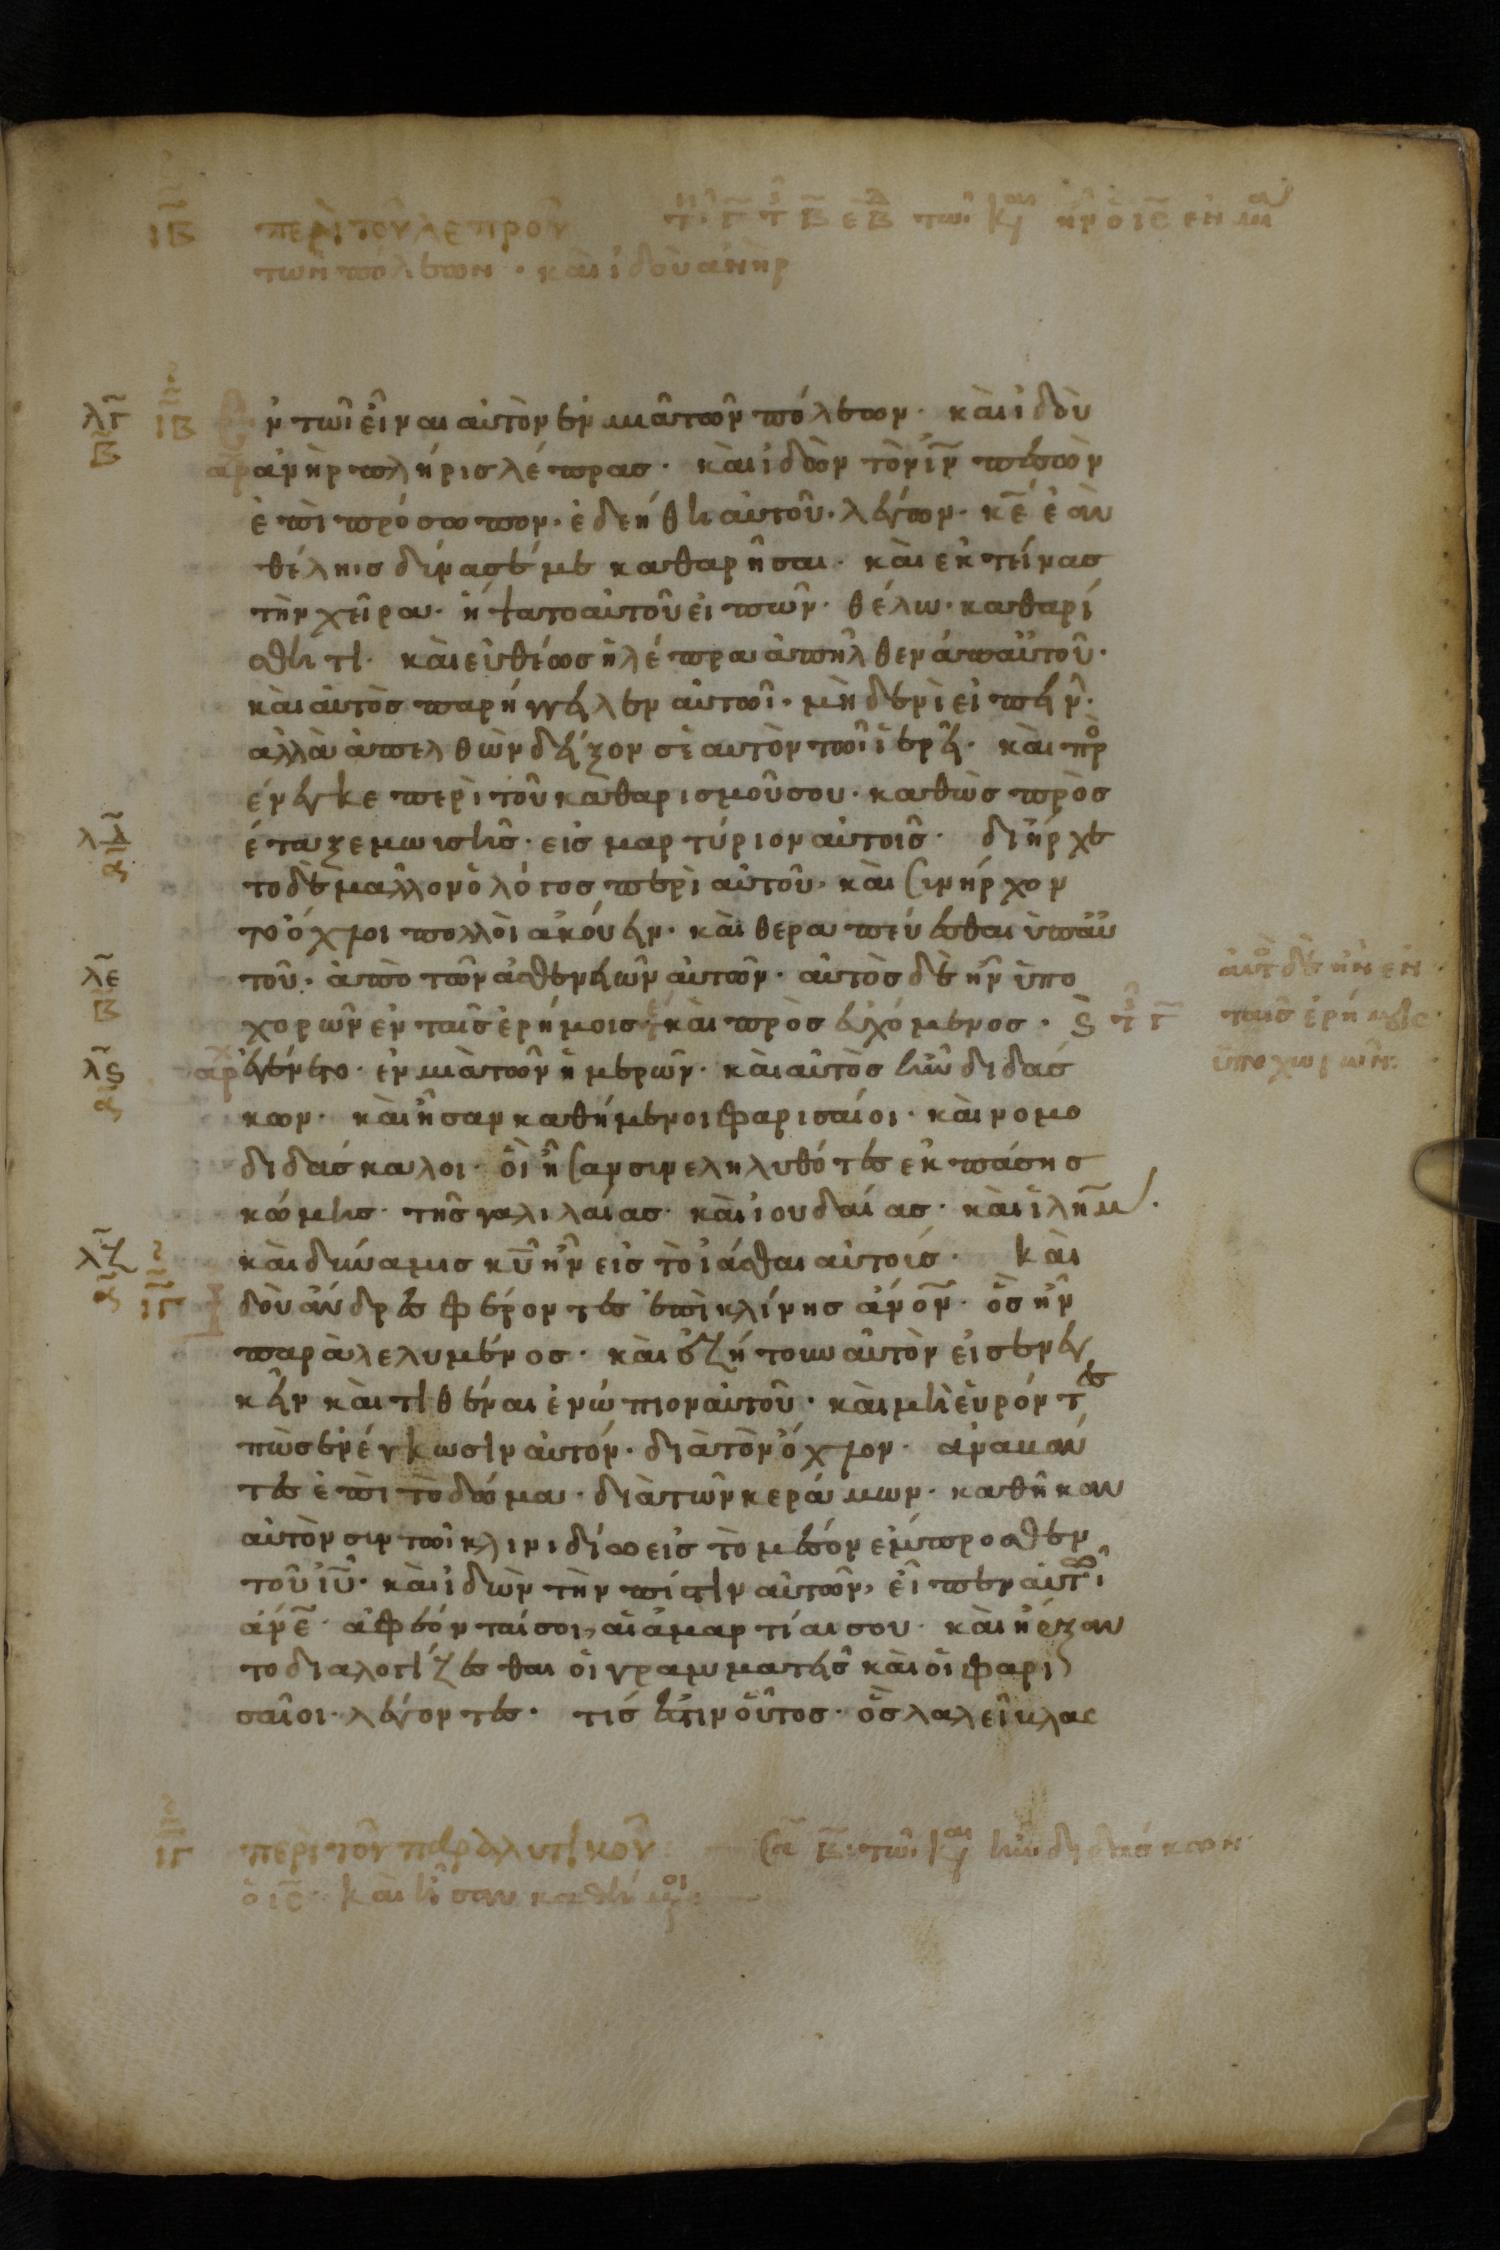 ΙΒ περὶ τοῦ λεπροῦ
τῶν πόλεων · καὶ ἰδοὺ ἀνὴρ
λγ ΙΒ Ἐν τῶι εἶναι αὐτὸν ἐν μιᾶ τῶν πόλεων · καὶ ἰδοὺ
β ἀρ ἀνὴρ πλήρις λέπρας · καὶ ἰδὼν τὸν ιν πεσὼν
ἐπὶ πρόσωπον · ἐδεήθη αὐτοῦ · λέγων · κε ἐὰν
θέληις δύνασέ με καθαρῆσαι · καὶ ἐκτείνας
τὴν χεῖρα · ἥψατο αὐτοῦ εἰπών · θέλω · καθαρί
σθητι · καὶ εὐθέως ἡ λέπρα ἀπῆλθεν ἀπ αὐτοῦ ·
καὶ αὐτὸς παρήγγειλεν αὐτῶι · μηδενὶ εἰπεῖν ·
ἀλλὰ ἀπελθὼν δεῖξον σἑαυτὸν τῶι ἱερεῖ · καὶ πρ
ένεγκε περὶ τοῦ καθαρισμοῦ σου · καθὼς πρὸς
λδ έταξε μωισῆς · εἰς μαρτύριον αὐτοῖς · διήρχε
α το δὲ μᾶλλον ὁ λόγος περὶ αὐτοῦ · καὶ συνήρχον
το ὄχλοι πολλοὶ ἀκούειν · καὶ θεραπεύεσθαι ὑπ αὐ
λε τοῦ · ἀπὸ τῶν ἀσθενειῶν αὐτῶν · αὐτὸς δὲ ἦν ὑπο
β χορῶν ἐν ταῖς ἐρήμοις καὶ προσευχόμενος ·
αὐτ δὲ ἦν ἐν
ταῖς ἐρήμοις
ὑποχωρῶν:
λς ἀρχ ἐγένετο · ἐν μιᾶ τῶν ἡμερῶν · καὶ αὐτὸς ἦν διδάσ
α κων · καὶ ἦσαν καθήμενοι φαρισαίοι · καὶ νομο
διδάσκαλοι · οἳ ἦσαν συνεληλυθότες ἐκ πάσης
κώμης · τῆς γαλιλαίας · καὶ ἰουδαίας · καὶ ἱλημ ·
λζ καὶ δύναμις κυ ἦν εἰς τὸ ἰάσθαι αὐτοὺς · Καὶ
α ΙΓ ἰδοὺ ἄνδρες φέροντες ἐπὶ κλίνης ἀνον · ὃς ἦν
παραλελυμένος · καὶ ἐζήτουν αὐτὸν εἰσενεγ
κεῖν καὶ τιθέναι ἐνώπιον αὐτοῦ · καὶ μὴ εὑρόντες
πὼς ἐνέγκωσιν αὐτόν · διὰ τὸν ὄχλον · ἀναβάν
τες ἐπὶ τὸ δώμα · διὰ τῶν κεράμων · καθῆκαν
αὐτὸν συν τῶι κλινιδίω εἰς τὸ μέσον ἔμπροσθεν
τοῦ ιυ · καὶ ἰδὼν τὴν πίστιν αὐτῶν, εἶπεν αὐτῶι
ἀνε · ἀφέονταί σοι, αἱ ἁμαρτίαι σου · καὶ ήρξαν
το διαλογίζεσθαι οἱ γραμματεῖς καὶ οἱ φαρι
σαῖοι · λέγοντες · τίς ἐστιν οὗτος · ὃς λαλεῖ βλας
ΙΓ περὶ τοῦ παραλυτικοῦ
ὁ ις · καὶ ἦσαν καθήμενοι